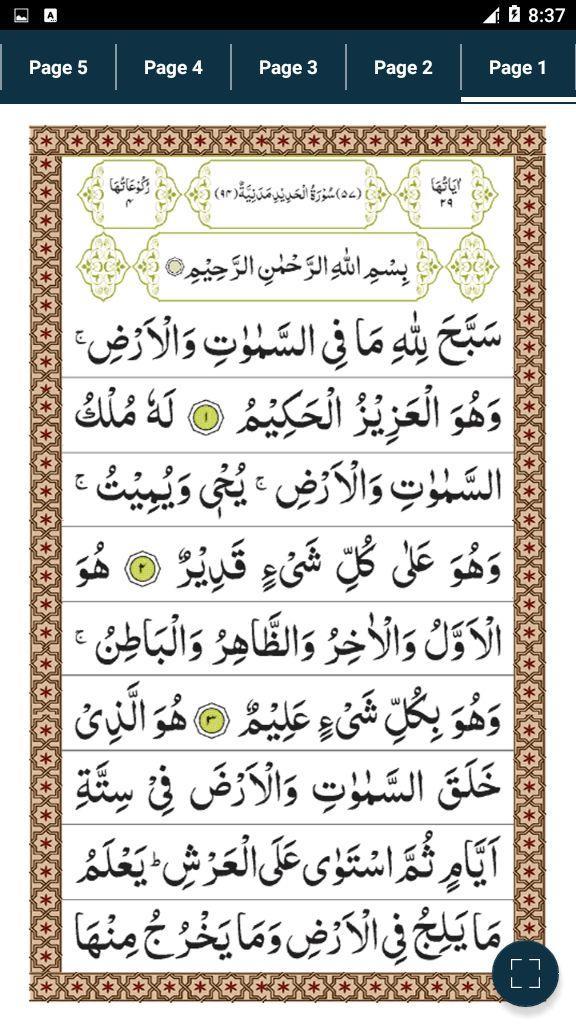 8:37
Page 5 Page 4 Page 3 Page 2 Page 1
اٰيَاتُهَا ٢٩
(٥٧) سُوْرَةُ الْحَدِيْدِ مَدَنِيَّةٌ (٩٤)
رُكُوْعَاتُهَا ٤
بِسْمِ اللّٰهِ الرَّحْمٰنِ الرَّحِيْمِ
سَبَّحَ لِلّٰهِ مَا فِى السَّمٰوٰتِ وَالْاَرْضِ ۚ
وَهُوَ الْعَزِيْزُ الْحَكِيْمُ ١ لَهٗ مُلْكُ
السَّمٰوٰتِ وَالْاَرْضِ ۚ يُحْىٖ وَيُمِيْتُ ۚ
وَهُوَ عَلٰى كُلِّ شَىْءٍ قَدِيْرٌ ٢ هُوَ
الْاَوَّلُ وَالْاٰخِرُ وَالظَّاهِرُ وَالْبَاطِنُ ۚ
وَهُوَ بِكُلِّ شَىْءٍ عَلِيْمٌ ٣ هُوَ الَّذِىْ
خَلَقَ السَّمٰوٰتِ وَالْاَرْضَ فِىْ سِتَّةِ
اَيَّامٍ ثُمَّ اسْتَوٰى عَلَى الْعَرْشِ ؕ يَعْلَمُ
مَا يَلِجُ فِى الْاَرْضِ وَمَا يَخْرُجُ مِنْهَا